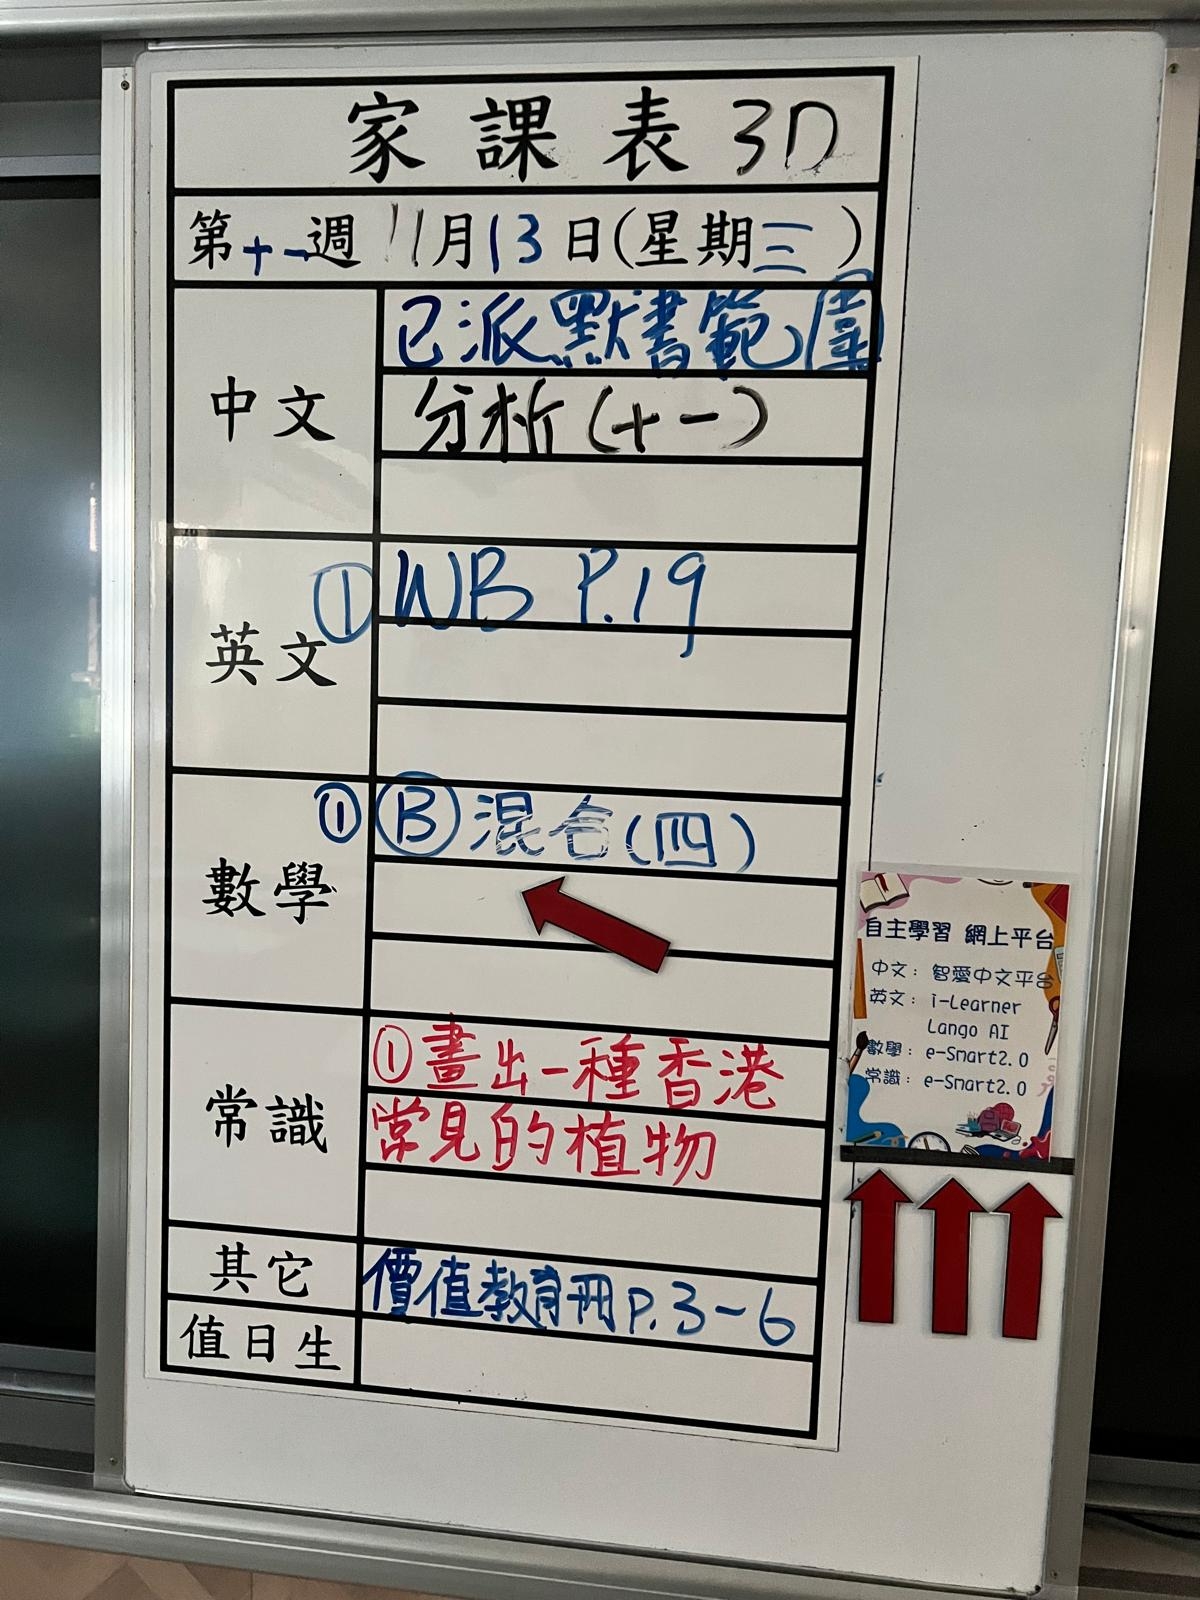 家課表 3D
第十一週 11月13日(星期三)
中文
已派默書範圍
分析(十一)
英文
① WB P.19
數學
① Ⓑ 混合(四)
常識
①畫出一種香港
常見的植物
其它
價值教育冊P.3-6
值日生
自主學習 網上平台
中文：智愛中文平台
英文：i-Learner
Lango AI
數學：e-Smart2.0
常識：e-Smart2.0